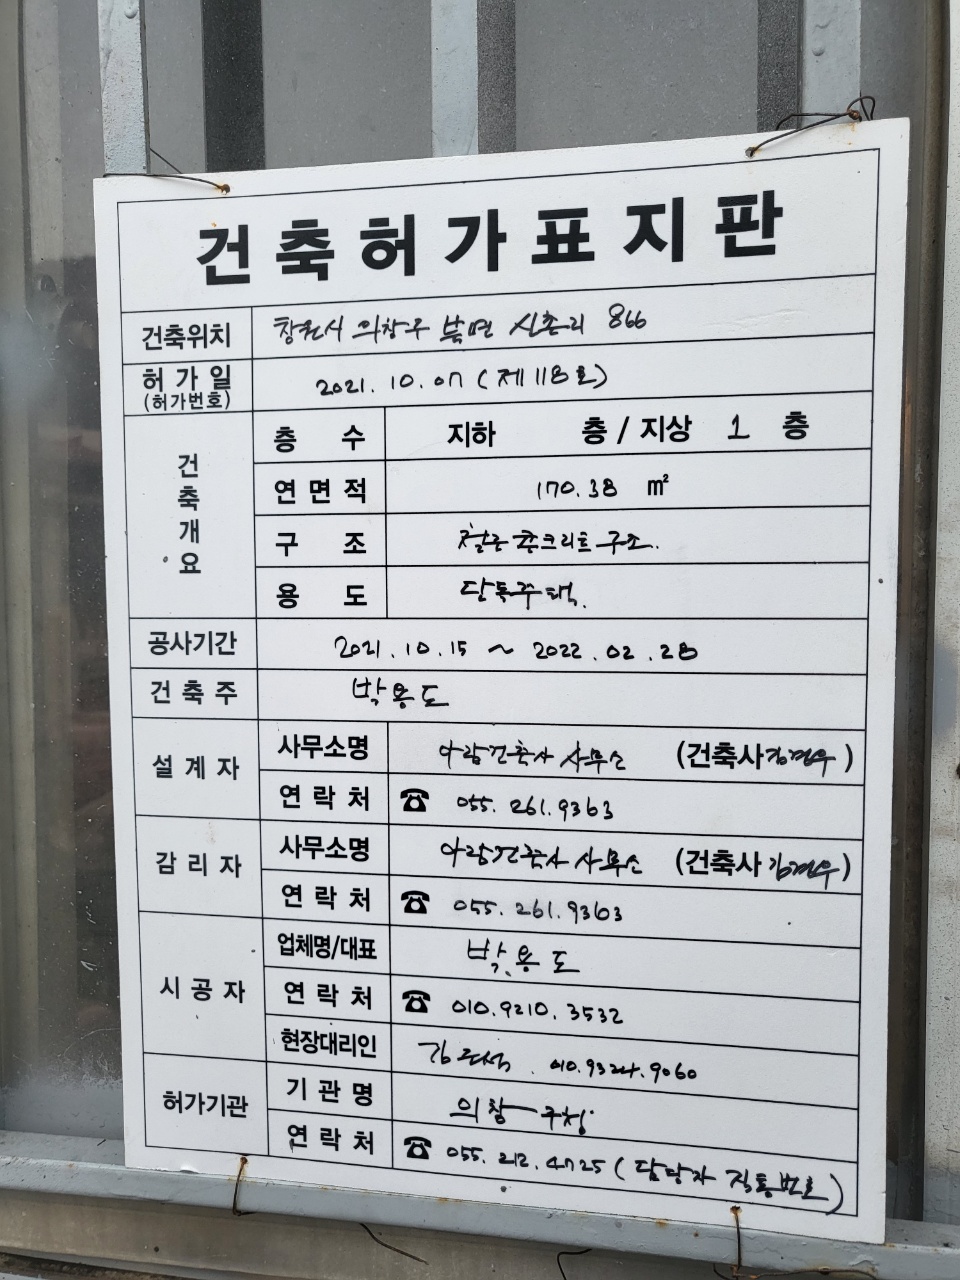 건축허가표지판
건축위치 창원시 의창구 북면 신촌리 866
허가일 2021. 10. 07 (제118호)
(허가번호)
건축개요
층 수 지하 층 / 지상 1 층
연면적 170.38 ㎡
구 조 철근콘크리트구조.
용 도 단독주택.
공사기간 2021. 10. 15 ~ 2022. 02. 28
건축주 박용도
설계자
사무소명 아람건축사 사무소 (건축사 김경우)
연락처 ☎ 055. 261. 9363
감리자
사무소명 아람건축사 사무소 (건축사 김경우)
연락처 ☎ 055. 261. 9363
시공자
업체명/대표 박용도
연락처 ☎ 010. 9210. 3532
현장대리인 김 010. 9324. 9060
허가기관
기관명 의창구청
연락처 ☎ 055. 212. 4725 (담당자 직통번호)